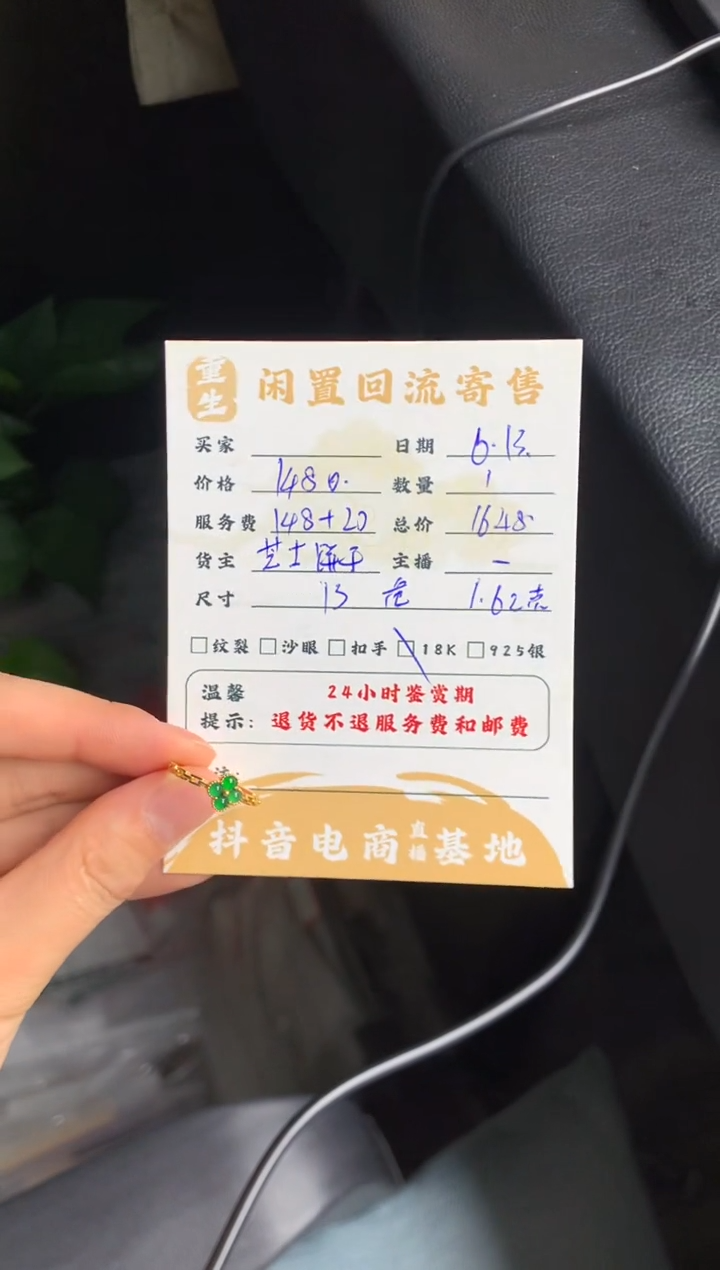 重生 闲置回流寄售
买家 日期 6.13.
价格 1480. 数量 1
服务费 148+20 总价 1648
货主 芝士饼干 主播 一
尺寸 13 壳 1.62克
□纹裂 □沙眼 □扣手 □18K □925银
温馨 24小时鉴赏期
提示: 退货不退服务费和邮费
抖音电商直播基地